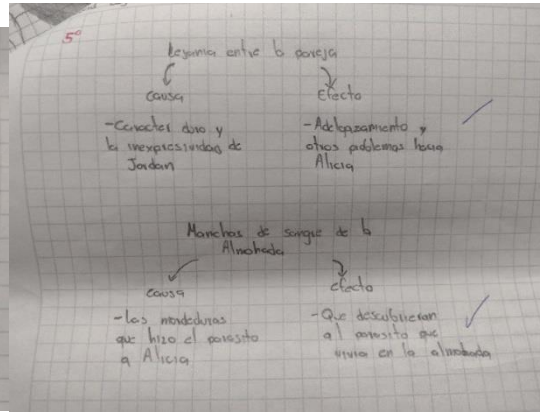 5º
Lejania entre la pareja
causa
efecto
-Caracter duro y
la inexpresividad de
Jordan
-Adelgazamiento y
otros problemas hacia
Alicia
Manchas de sangre de la
Almohada
causa
efecto
-Las mordeduras
que hizo el parasito
a Alicia
-Que descubrieran
al parasito que
vivia en la almohada